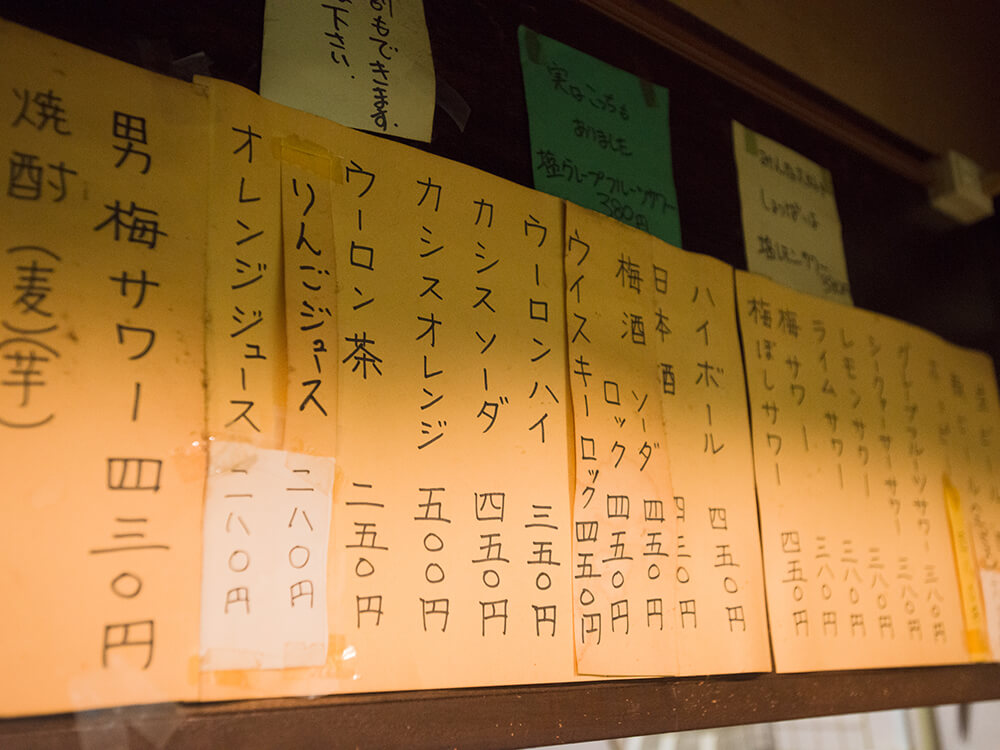 もできます。
下さい。
実はこっちも
ありました
塩グレープフルーツサワー
380円
しょっぱい
塩レモンサワー
三八〇円
グレープフルーツサワー 三八〇円
シークァーサーサワー 三八〇円
レモンサワー 三八〇円
ライムサワー 三八〇円
梅サワー 四五〇円
梅ぼしサワー
ハイボール 四五〇円
日本酒 四三〇円
梅酒 ソーダ 四五〇円
ロック 四五〇円
ウイスキーロック 四五〇円
ウーロンハイ 三五〇円
カシスソーダ 四五〇円
カシスオレンジ 五〇〇円
ウーロン茶 二五〇円
りんごジュース 二八〇円
オレンジジュース 二八〇円
男梅サワー 四三〇円
焼酎(麦)(芋)